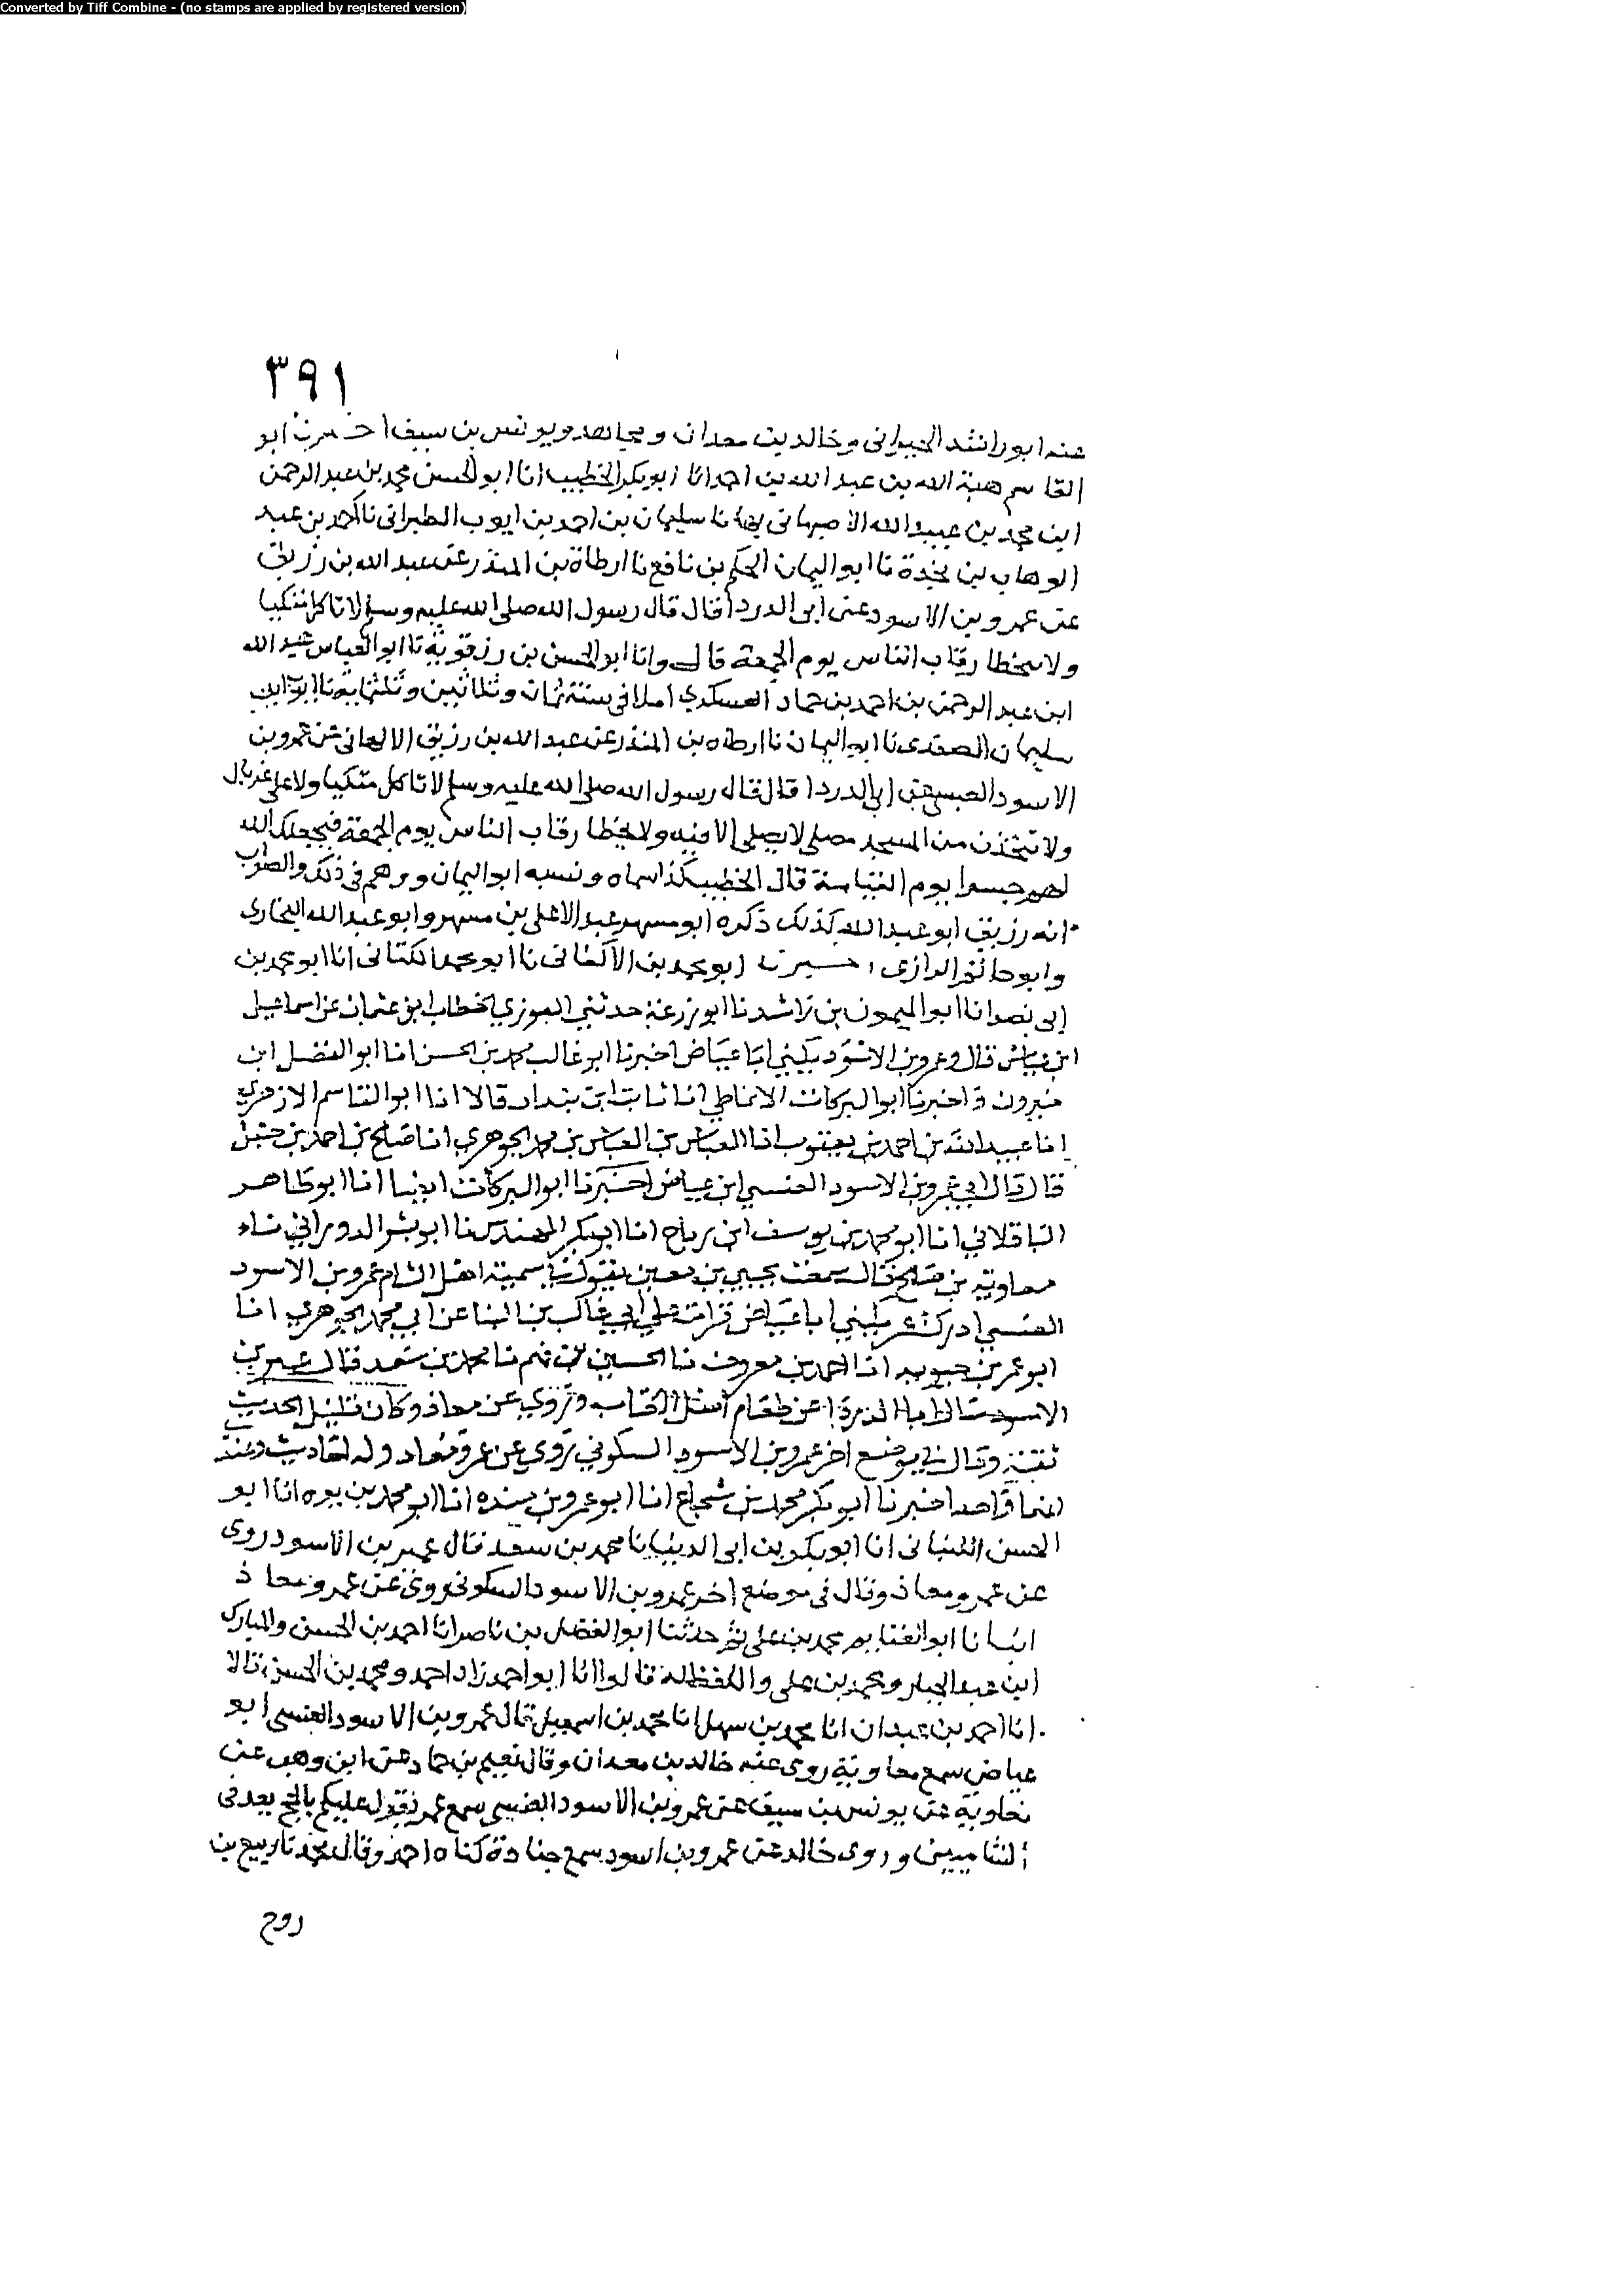 Converted by Tiff Combine - (no stamps are applied by registered version)
٣٩١
عنه ابو راشد الحبراني وخالد بن معدان ومجاهد ويونس بن سيف اخبرنا ابو
القاسم هبة الله بن عبد الله بن احمد انا ابو بكر الخطيب انا ابو الحسن محمد بن عبد الرحمن
ابن محمد بن عبيد الله الاصبهاني بها نا سليمان بن احمد بن ايوب الطبراني نا احمد بن عبد
الوهاب بن نجدة نا ابو اليمان الحكم بن نافع نا ارطاة بن المنذر عن عبد الله بن رزيق
عن عمرو بن الاسود عن ابي الدردا قال قال رسول الله صلى الله عليه وسلم لا تاكل متكيا
ولا تخطا رقاب الناس يوم الجمعة قال وانا ابو الحسن بن رزقويه نا ابو العباس عبد الله
ابن عبد الرحمن بن احمد بن حماد العسكري املا في سنة ثمان وثلاثين وثلثماية نا ابو ايوب
سليمان الصفدي نا ابو اليمان نا ارطاه بن المنذر عن عبد الله بن رزيق الالهاني عن عمرو بن
الاسود العبسي عن ابي الدردا قال قال رسول الله صلى الله عليه وسلم لا تاكل متكيا ولا على غربال
ولا تتخذن من المسجد مصلى لا يصلى الا فيه ولا تخطا رقاب الناس يوم الجمعة فيجعلك الله
لهم جسرا يوم القيامة قال الخطيب كذا سماه ونسبه ابو اليمان ووهم في ذلك والصواب
انه رزيق ابو عبد الله كذلك ذكره ابو مسهر عبد الاعلى بن مسهر وابو عبد الله البخاري
وابو حاتم الرازي اخبرنا ابو محمد بن الاكفاني نا ابو محمد الكتاني انا ابو محمد بن
ابي نصر انا ابو الميمون بن راشد نا ابو زرعة حدثني الفوزي الخطاب بن عثمان عن اسماعيل
ابن عياش قال وعمرو بن الاسود يكنى ابا عياض اخبرنا ابو غالب محمد بن الحسن انا ابو الفضل ابن
خيرون و اخبرنا ابو البركات الانماطي انا ثابت ابن بندار قالا انا ابو القاسم الازهري
انا عبيد الله بن احمد بن يعقوب انا العباس بن العباس بن محمد الجوهري انا صالح بن احمد بن حنبل
قال قال ابي عمرو بن الاسود العنسي ابن عياض اخبرنا ابو البركات ايضا انا ابو طاهر
الباقلاني انا ابو محمد بن يوسف ابن رباح انا ابو بكر المهندس نا ابو بشر الدورابي نساء
معاويه بن صالح قال سمعت يحيى بن معين يقول في تسمية اهل الشام عمرو بن الاسود
العنسي ادرك عمر يكنى ابا عياض قرات على ابي غالب بن البنا عن ابي محمد الجوهري انا
ابو عمر بن حيويه انا احمد بن معروف نا الحسين بن فهم نا محمد بن سعد قال عمير بن
الاسود سال ابا الدردا عن طعام اهل الكتاب وروى عن معاذ وكان قليل الحديث
ثقة وقال في موضع اخر عمرو بن الاسود السكوني روى عن عمر ومعاد وله احاديث وعند
انما واحد اخبرنا ابو بكر محمد بن شجاع انا ابو عمرو بن منده انا ابو محمد بن يوه انا ابو
الحسن اللنباني انا ابو بكر بن ابي الدنيا نا محمد بن سعد قال عمير بن الاسود روى
عن عمر ومعاذ وقال في موضع اخر عمرو بن الاسود السكوني روى عن عمر ومعاذ
انبانا ابو الغنايم محمد بن علي ثم حدثنا ابو الفضل بن ناصر انا احمد بن الحسن والمبارك
ابن عبد الجبار ومحمد بن علي واللفظ له قالوا انا ابو احمد زاد احمد ومحمد بن الحسن قالا
انا احمد بن عبدان انا محمد بن سهل انا محمد بن اسمعيل قال عمرو بن الاسود العنسي ابو
عياض سمع معاوية روى عنه خالد بن معدان وقال نعيم بن حماد عن ابن وهب عن
معاوية عن يونس بن سيف عن عمرو بن الاسود العنسي سمع عمر يقول عليكم بالحج يعد في
الشاميين وروى خالد عن عمرو بن اسود سمع جنادة كناه احمد وقال محمد نا ربيع بن
روح